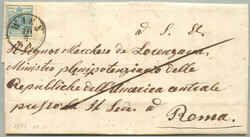 WIEN
à S. E.
il Signor Marchese de Lorenzana
Ministro plenipotenziario delle
Repubbliche dell'America centrale
presso la S. Sede à
Roma.